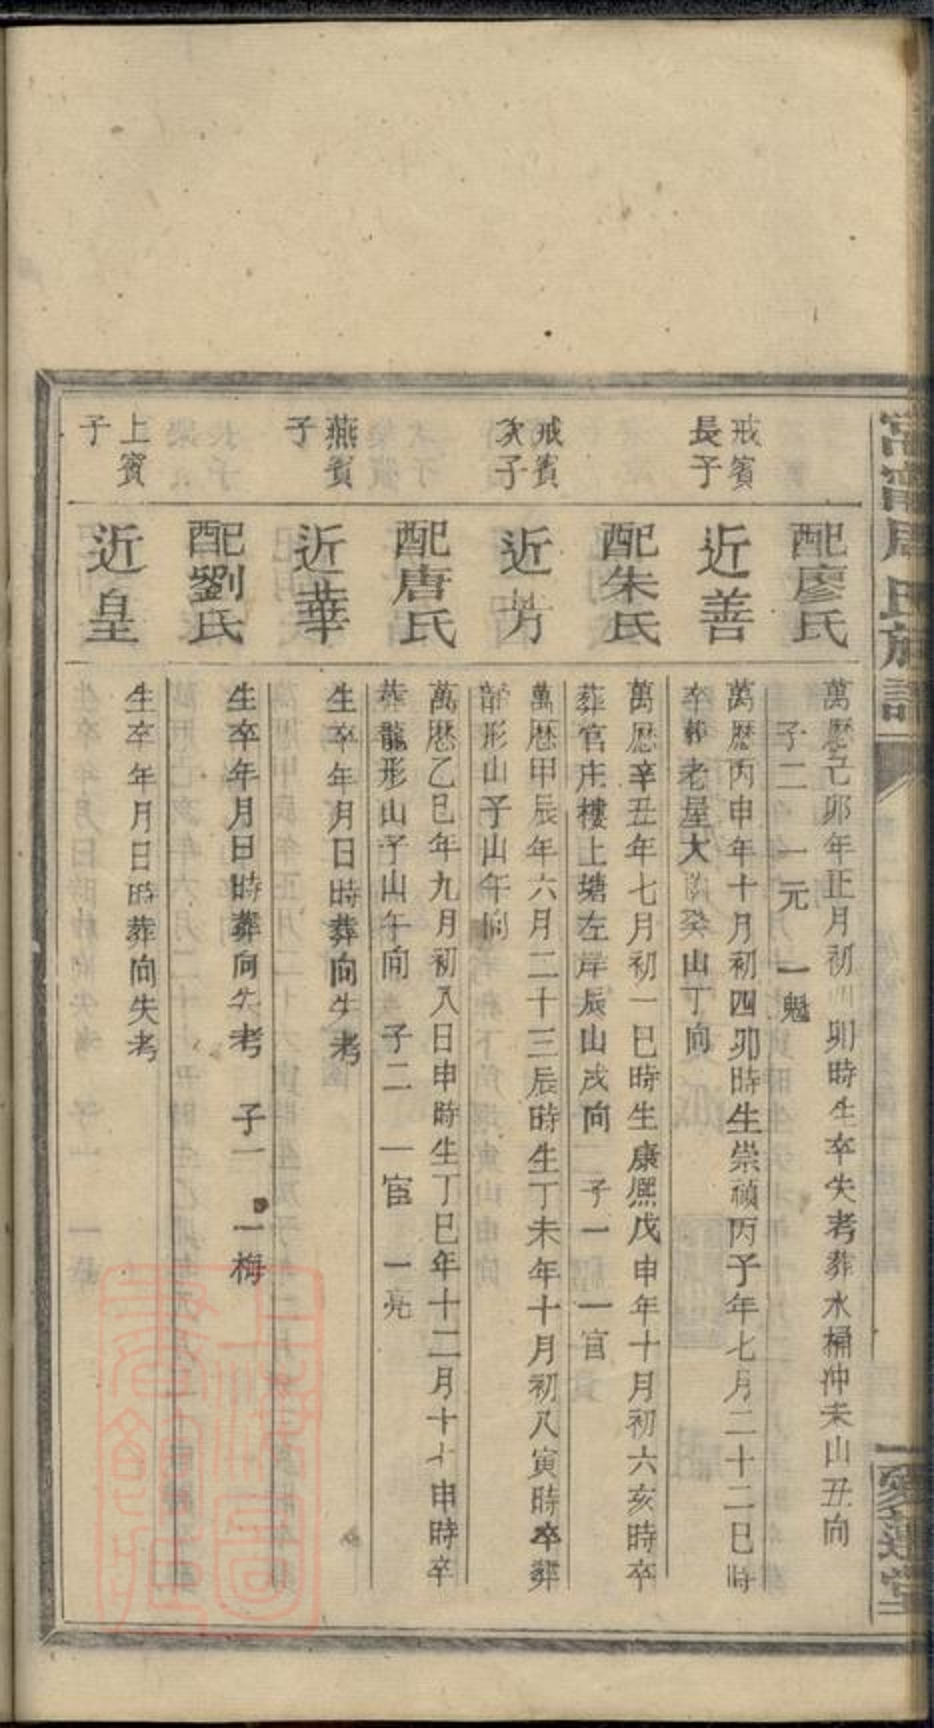 常甯周氏族譜
愛蓮堂
配廖氏
萬厯己卯年正月初四卯時生卒失考葬水桶冲未山丑向
子二 一元 一魁
戒賓
長子
近善
萬厯丙申年十月初四卯時生崇禎丙子年七月二十二巳時
卒葬老屋大 癸山丁向
配朱氏
萬厯辛丑年七月初一巳時生康熙戊申年十月初六亥時卒
葬官庄樓上塘左岸辰山戌向 子一 一官
戒賓
次子
近方
萬厯甲辰年六月二十三辰時生丁未年十月初八寅時卒葬
龍形山子山午向
配唐氏
萬厯乙巳年九月初八日申時生丁巳年十二月十七申時卒
葬龍形山子山午向 子二 一宦 一亮
燕賓
子
近華
生卒年月日時葬向失考
配劉氏
生卒年月日時葬向失考 子一 一梅
上賓
子
近皇
生卒年月日時葬向失考
上海圖書館藏